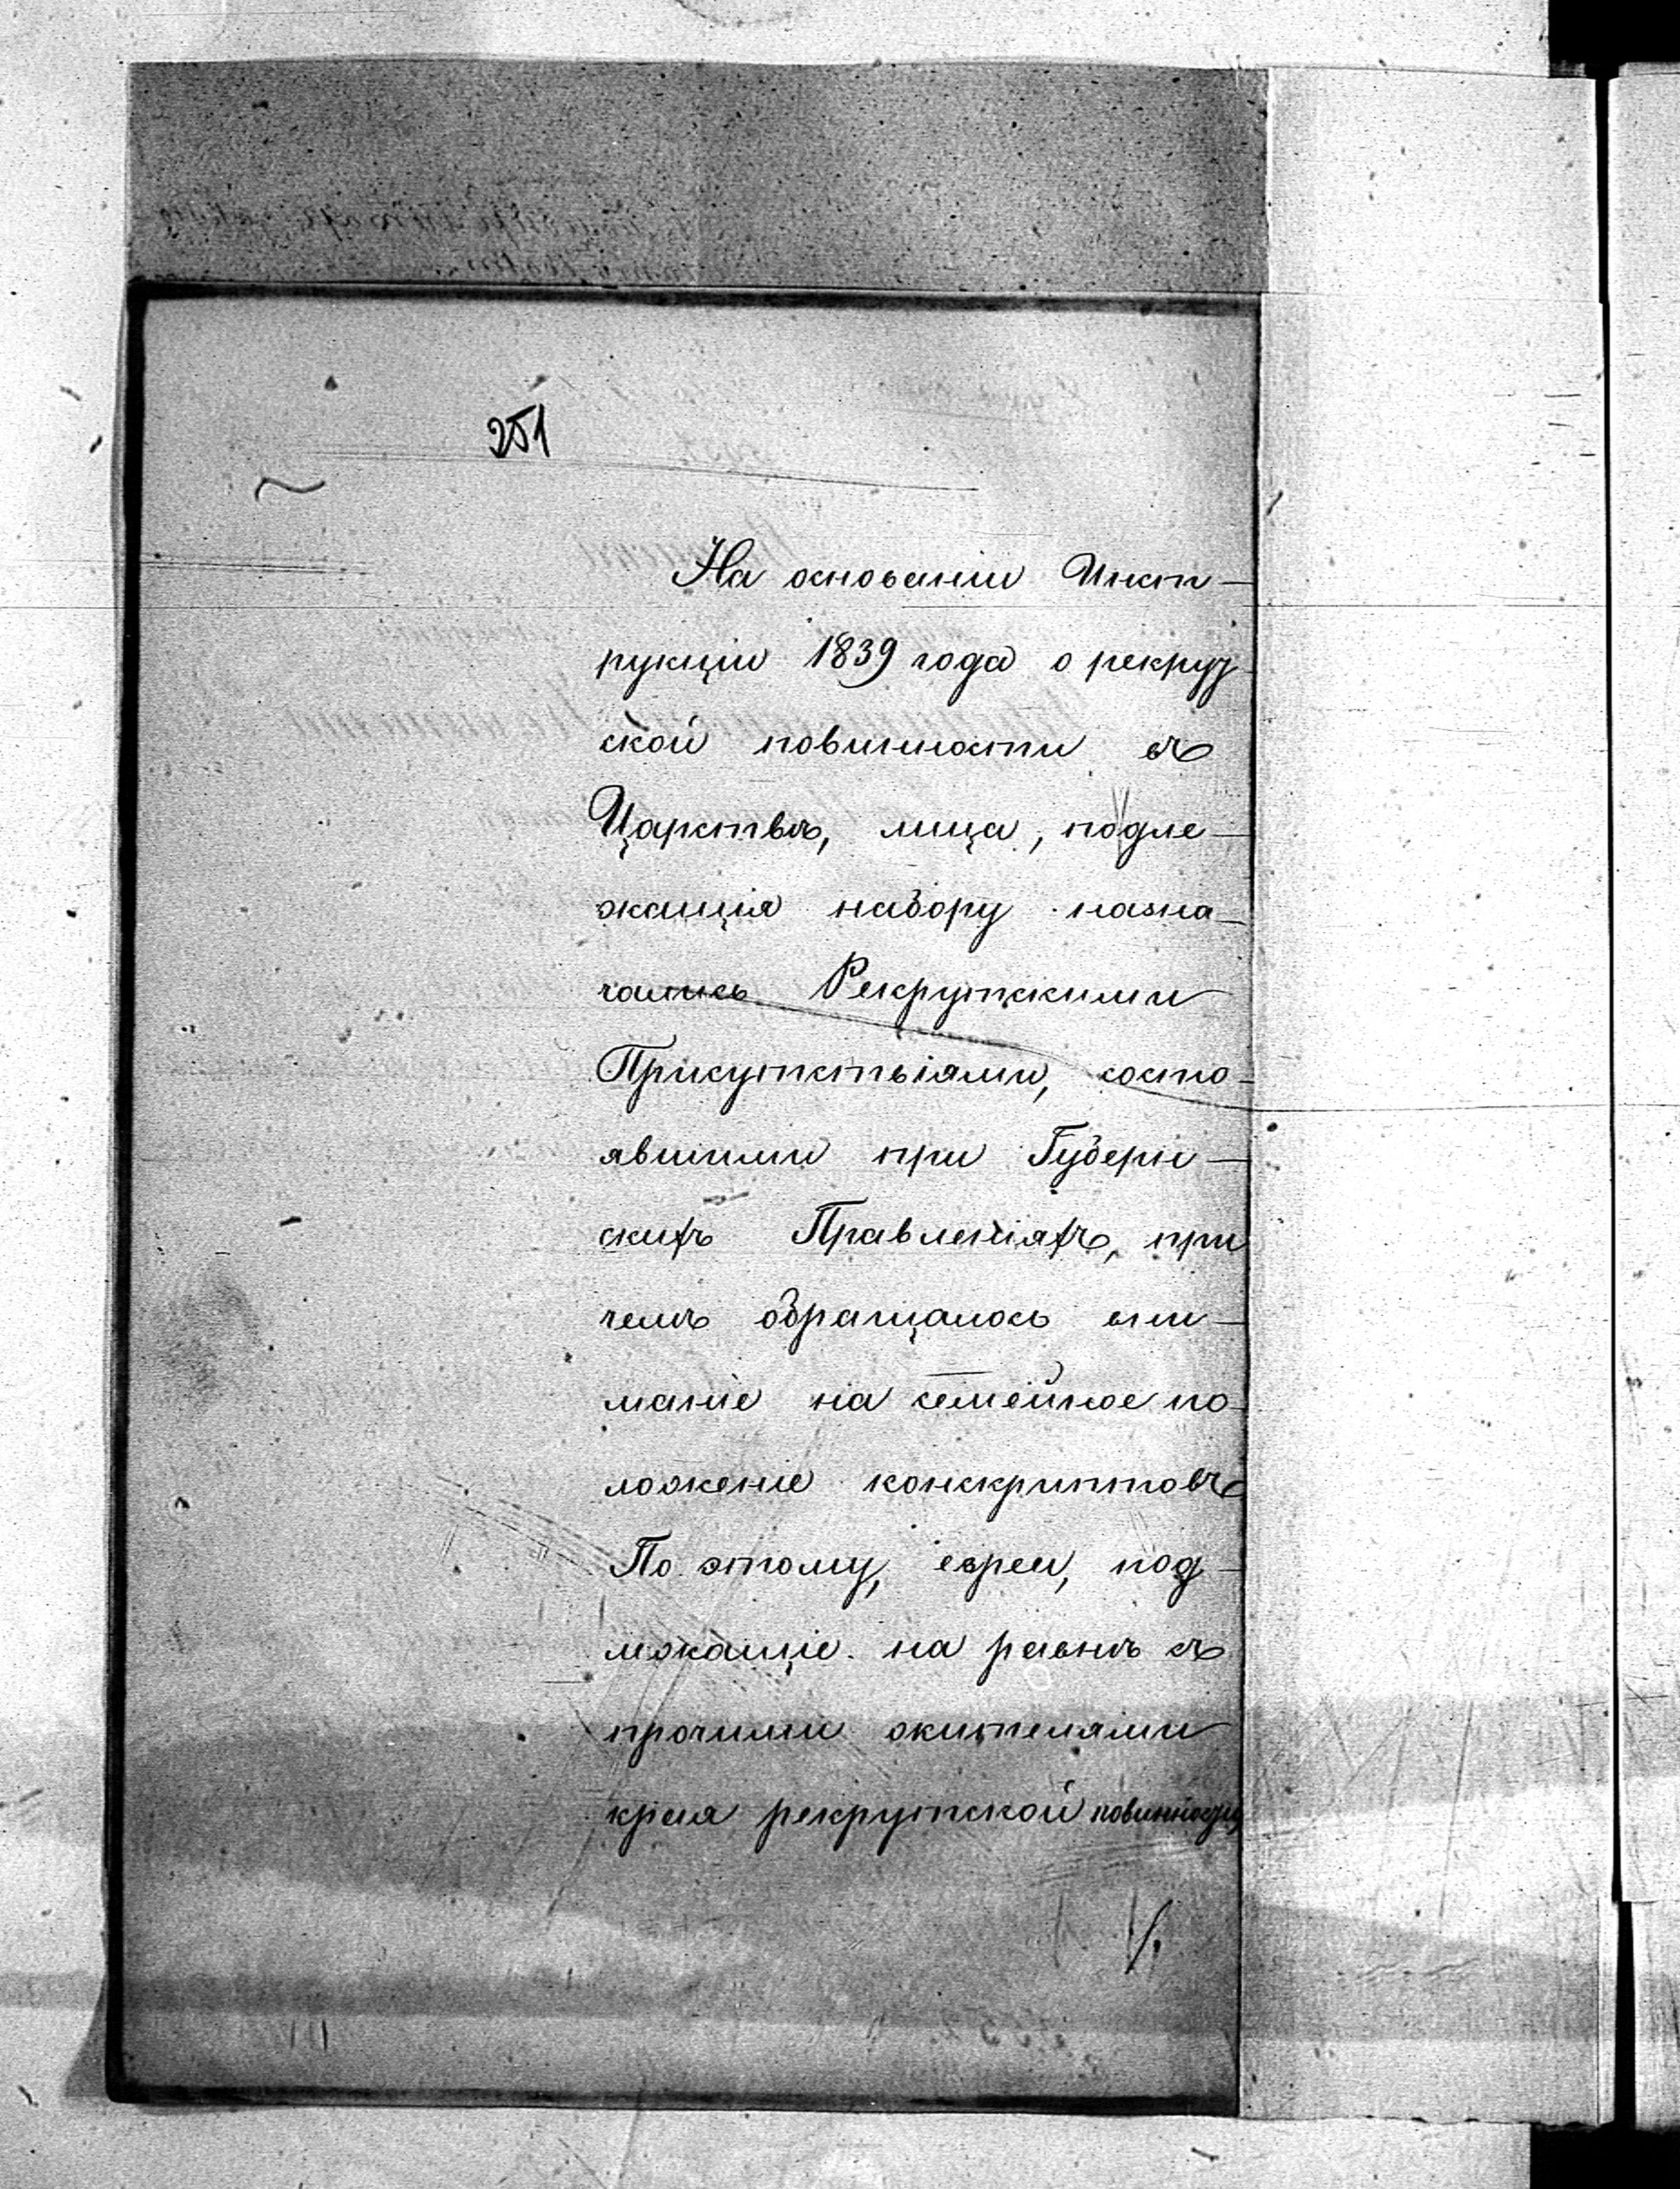 251
На основаніи Инст-
рукціи 1839 года о рекрут
ской повинности въ
Царствѣ, лица, подле-
жащія набору назна-
чались Рекрутскими
Присутствіями, состо-
явшими при Губерн-
скихъ Правленіяхъ, при
чемъ обращалось вни-
маніе на семейное по-
ложеніе конскриптовъ
По этому, евреи, под-
лежащіе на равнѣ съ
прочими жителями
края рекрутской повинности,